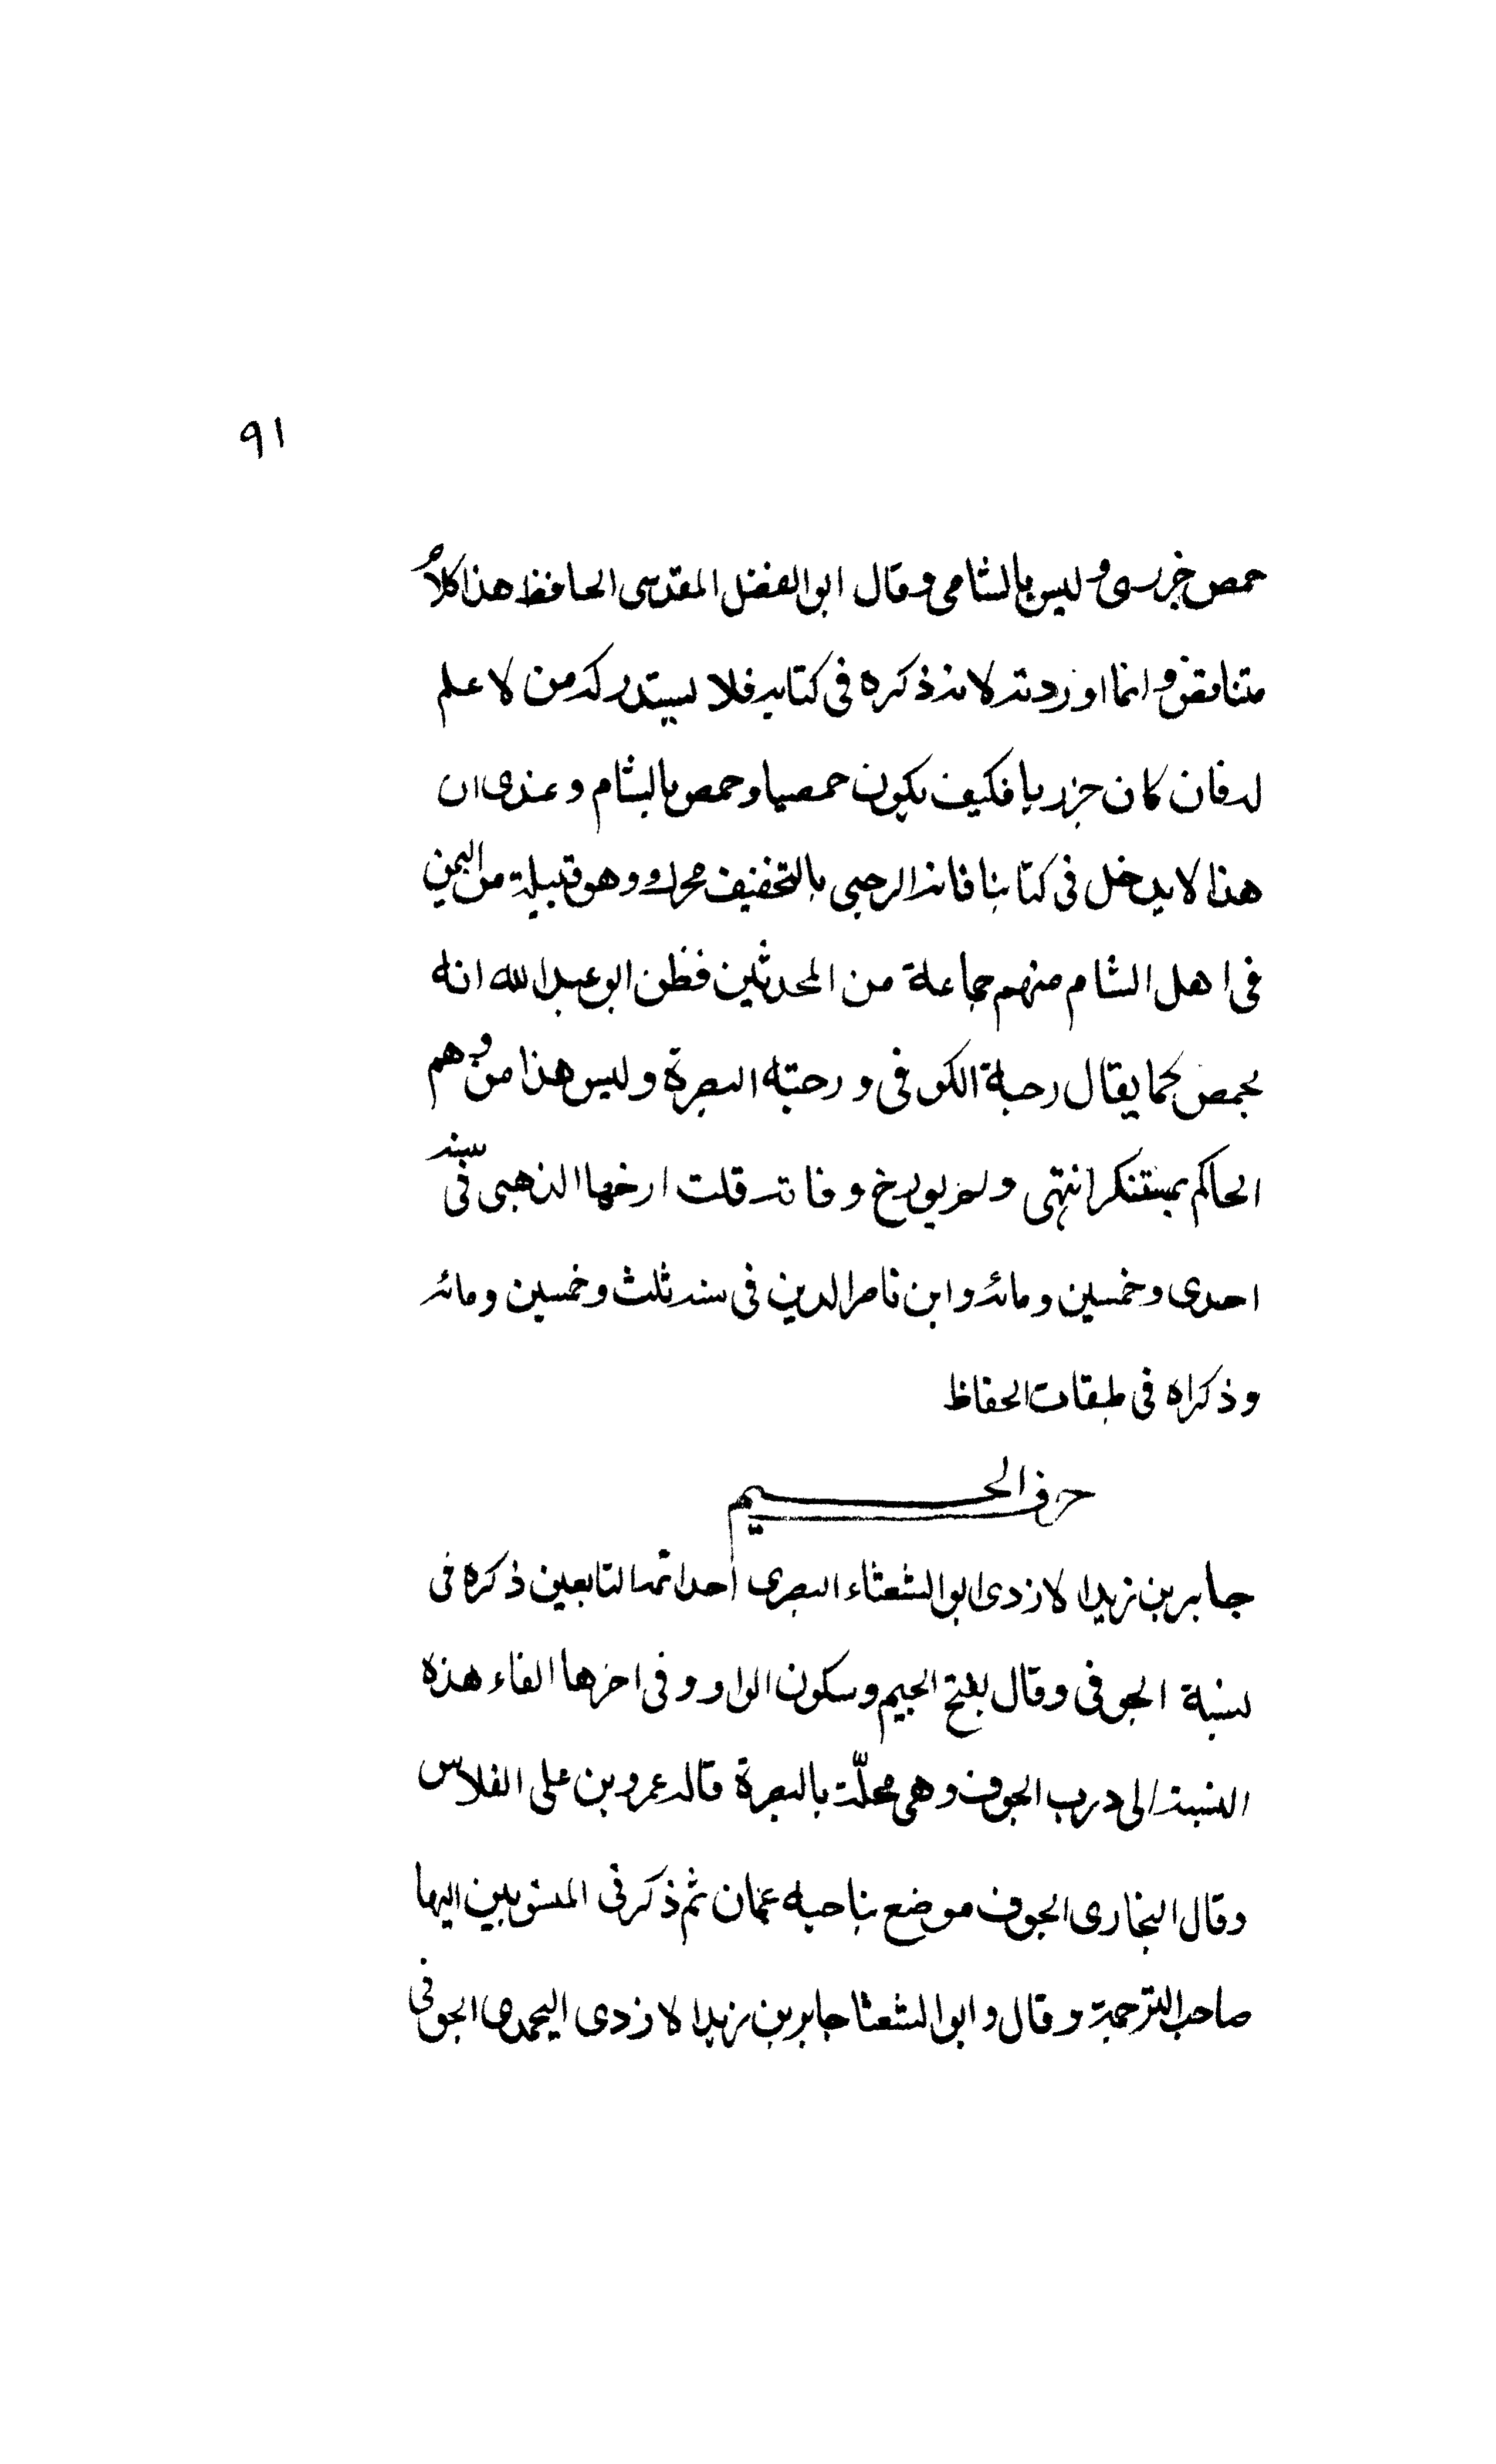 ٩١
حمص جزرى وليس بالشامى وقال ابو الفضل المقدسى الحافظ هذا كلام
متناقض وانما اوردته لانه ذكره فى كتابه فلا يستدركه من لا علم
له فان كان جزريا فكيف يكون حمصيا وحمص بالشام وعندى ان
هذا لا يدخل فى كتابنا فانه الرحبى بالتخفيف محرك وهو قبيلة من اليمن
فى اهل الشام منهم جماعة من المحدثين فظن ابو عبد الله انه
بحمص كما يقال رحبة الكوفى ورحبته البصرة وليس هذا من وهم
الحاكم بمستنكر انتهى ولم يورخ وفاته قلت ارخها الذهبى فى سنه
احدى وخمسين ومائه وابن ناصر الدين فى سنه ثلث وخمسين ومائه
وذكراه فى طبقات الحفاظ
حرف الجيم
جابر بن زيد الازدى ابو الشعثاء البصرى احد ائمه التابعين ذكره فى
نسبة الجوفى وقال بفتح الجيم وسكون الواو وفى اخرها الفاء هذه
النسبة الى درب الجوف وهى محلّة بالبصرة قاله عمرو بن على الفلاس
وقال البخارى الجوف موضع بناحيه عمان ثم ذكر فى المنسوبين اليها
صاحب الترجمة وقال وابو الشعثا جابر بن زيد الازدى اليحمدى الجوفى